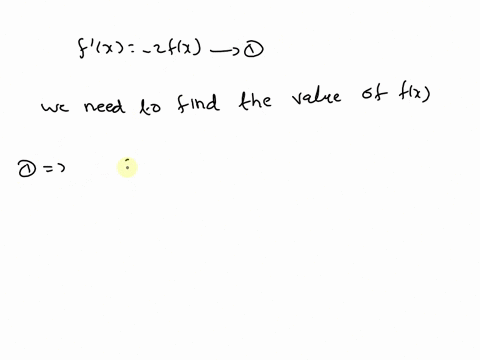 f'(x) = -2f(x) → ①
we need to find the value of f(x)
① =>